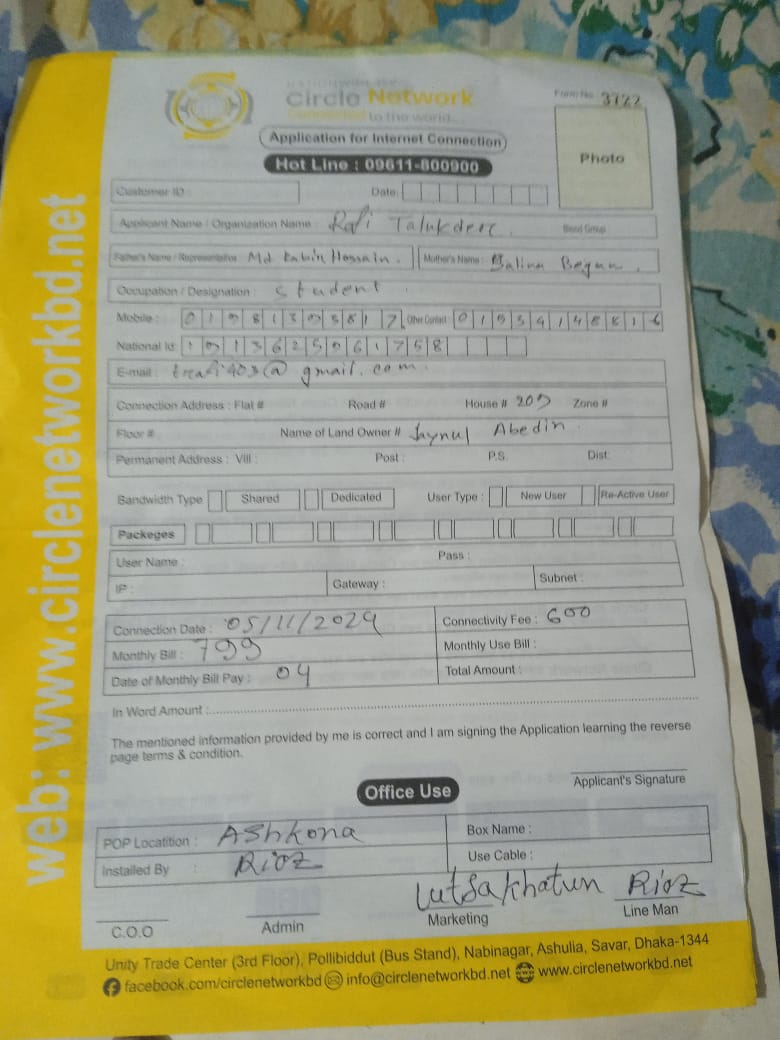 Circle Network
Connected to the world...
Form No : 3722
Application for Internet Connection
Hot Line : 09611-800900
Photo
Customer ID :
Date:
Applicant Name / Organization Name : Rafi Talukder.
Blood Group
Father's Name / Representative : Md Kabir Hossain. Mother's Name : Begum.
Occupation / Designation : Student
Mobile : Other Contact
National Id:
E-mail : @gmail.com.
Connection Address : Flat # Road # House # 205 Zone #
Floor # Name of Land Owner # Jaynul Abedin
Permanent Address : Vill : Post : P.S. Dist.
Bandwidth Type Shared Dedicated User Type : New User Re-Active User
Packeges
User Name : Pass :
IP : Gateway : Subnet :
Connection Date : 05/11/2024 Connectivity Fee : 600
Monthly Bill : 799 Monthly Use Bill :
Date of Monthly Bill Pay : 04 Total Amount :
In Word Amount :
The mentioned information provided by me is correct and I am signing the Application learning the reverse
page terms & condition.
Applicant's Signature
Office Use
POP Locatition : Ashkona Box Name :
Installed By : Rioz Use Cable :
Lutsakhatun Rioz
C.O.O Admin Marketing Line Man
Unity Trade Center (3rd Floor), Pollibiddut (Bus Stand), Nabinagar, Ashulia, Savar, Dhaka-1344
facebook.com/circlenetworkbd info@circlenetworkbd.net www.circlenetworkbd.net
web: www.circlenetworkbd.net